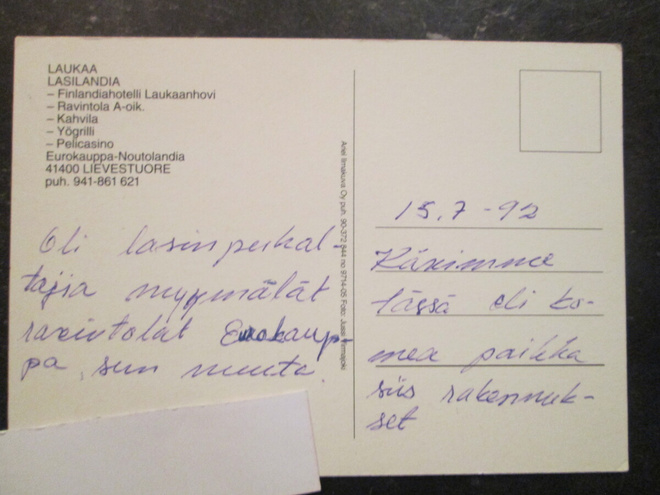 LAUKAA
LASILANDIA
– Finlandiahotelli Laukaanhovi
– Ravintola A-oik.
– Kahvila
– Yögrilli
– Pelicasino
Eurokauppa-Noutolandia
41400 LIEVESTUORE
puh. 941-861 621
Oli lasinpuhal-
tajia myymälät
ravintolat Eurokaup-
pa, sun muuta.
Ariel Ilmakuva Oy puh. 90-372 844 no 9714-05 Foto: Jussi
15.7 -92
Kävimme
tässä oli ko-
mea paikka
siis rakennuk-
set